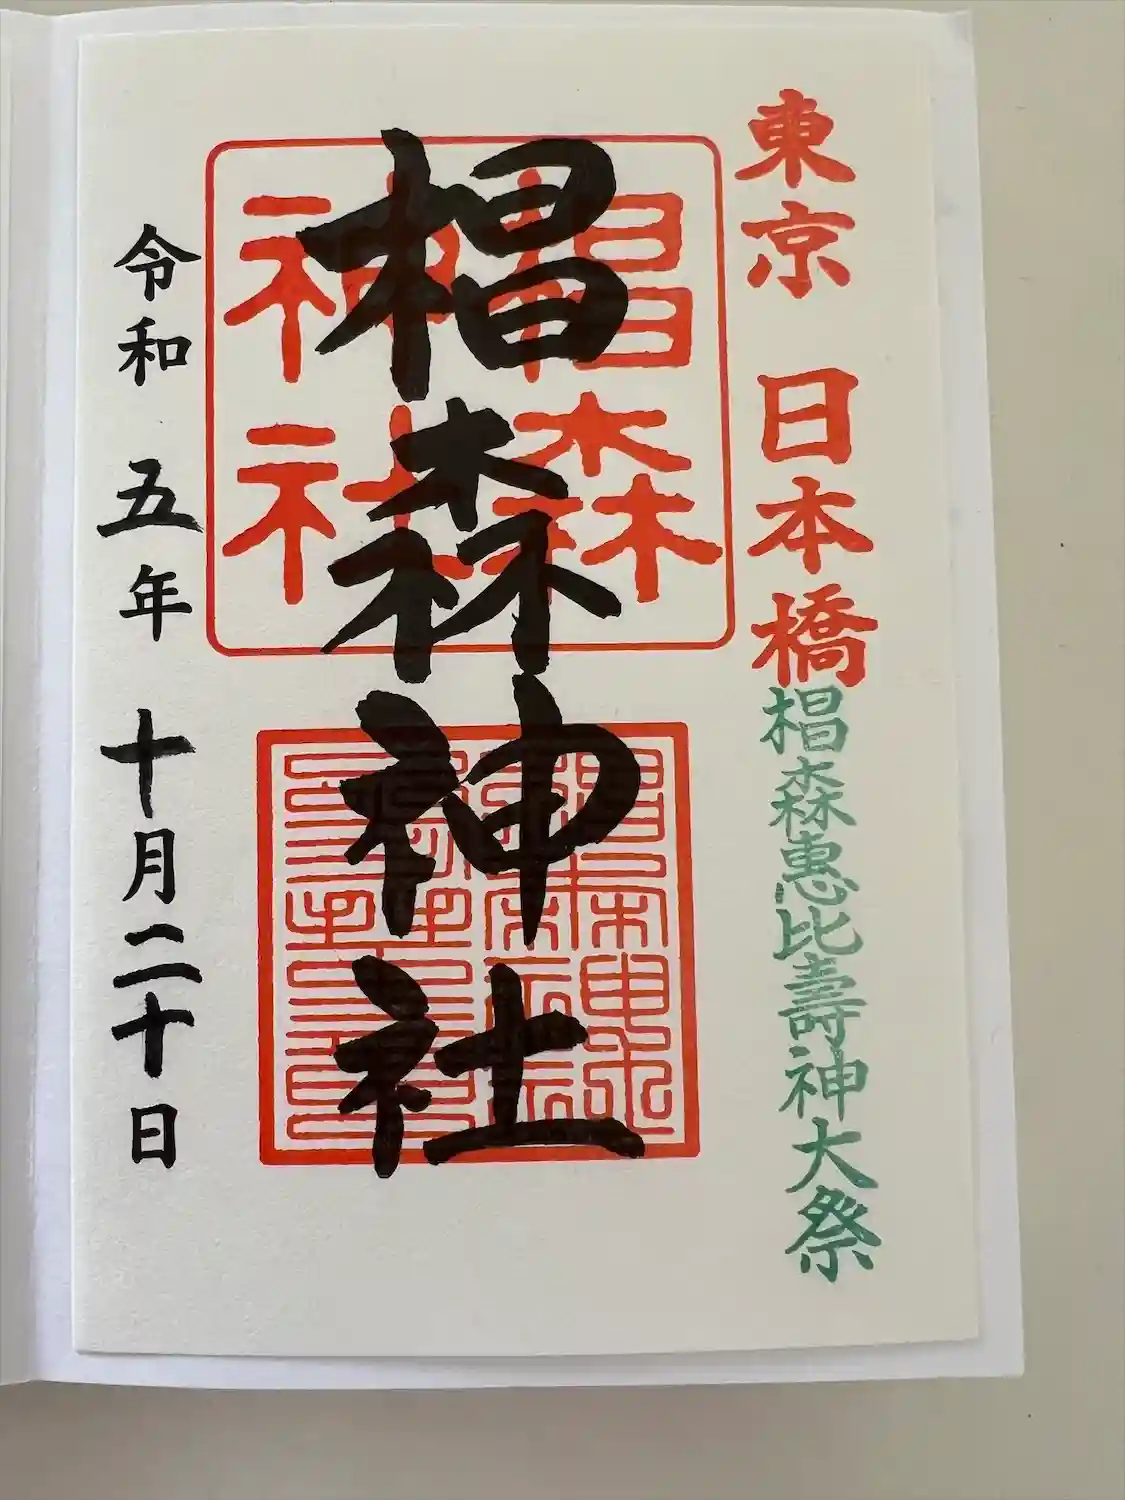 東京 日本橋
椙森恵比壽神大祭
椙森神社
椙森
神社
令和 五年 十月二十日